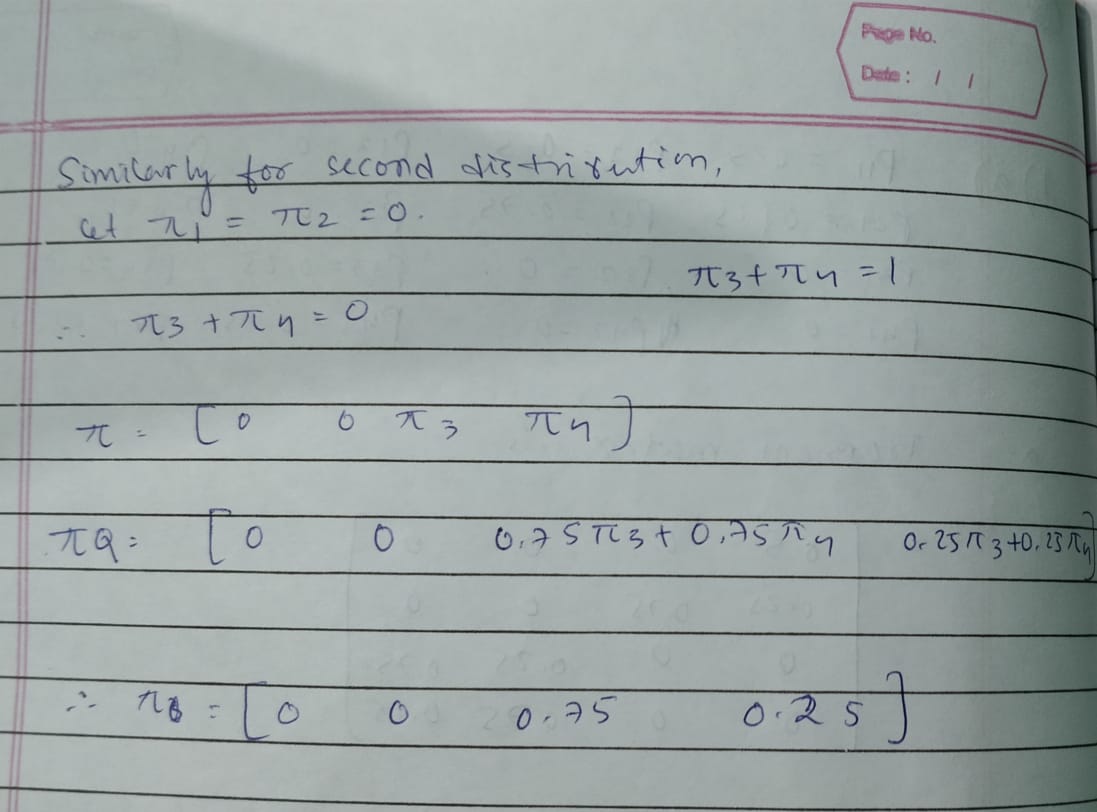 Page No.
Date : / /
Similarly for second distribution,
let π1 = π2 = 0.
π3 + π4 = 1
∴ π3 + π4 = 0
π = [ 0 0 π3 π4 ]
πQ = [ 0 0 0.75 π3 + 0.75 π4 0.25 π3 + 0.25 π4 ]
∴ π = [ 0 0 0.75 0.25 ]